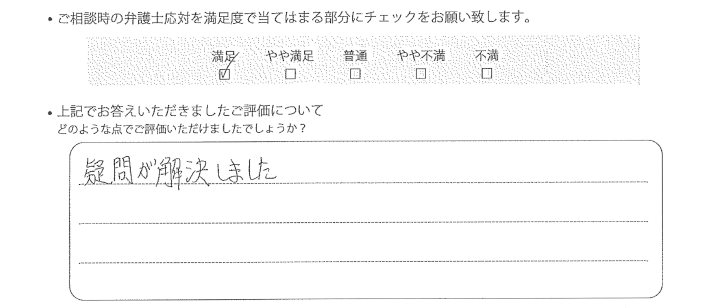 • ご相談時の弁護士応対を満足度で当てはまる部分にチェックをお願い致します。
満足 やや満足 普通 やや不満 不満
☑ □ □ □ □
• 上記でお答えいただきましたご評価について
どのような点でご評価いただけましたでしょうか？
疑問が解決しました